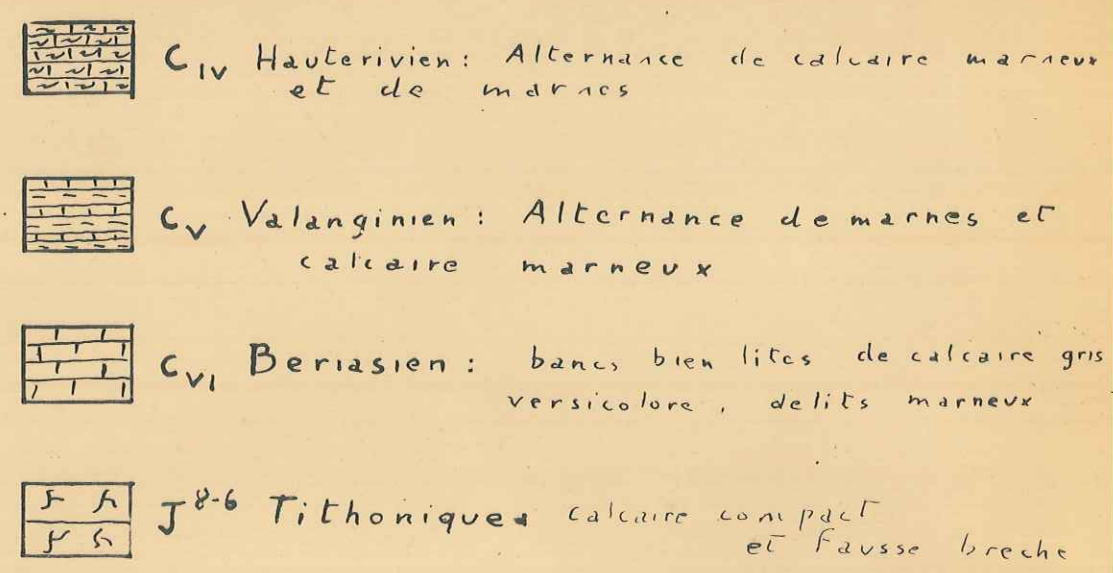 C IV Hauterivien: Alternance de calcaire marneux
et de marnes
C V Valanginien: Alternance de marnes et
calcaire marneux
C VI Beriasien: bancs bien lites de calcaire gris
versicolore, delits marneux
J 8-6 Tithonique. calcaire compact
et Fausse breche